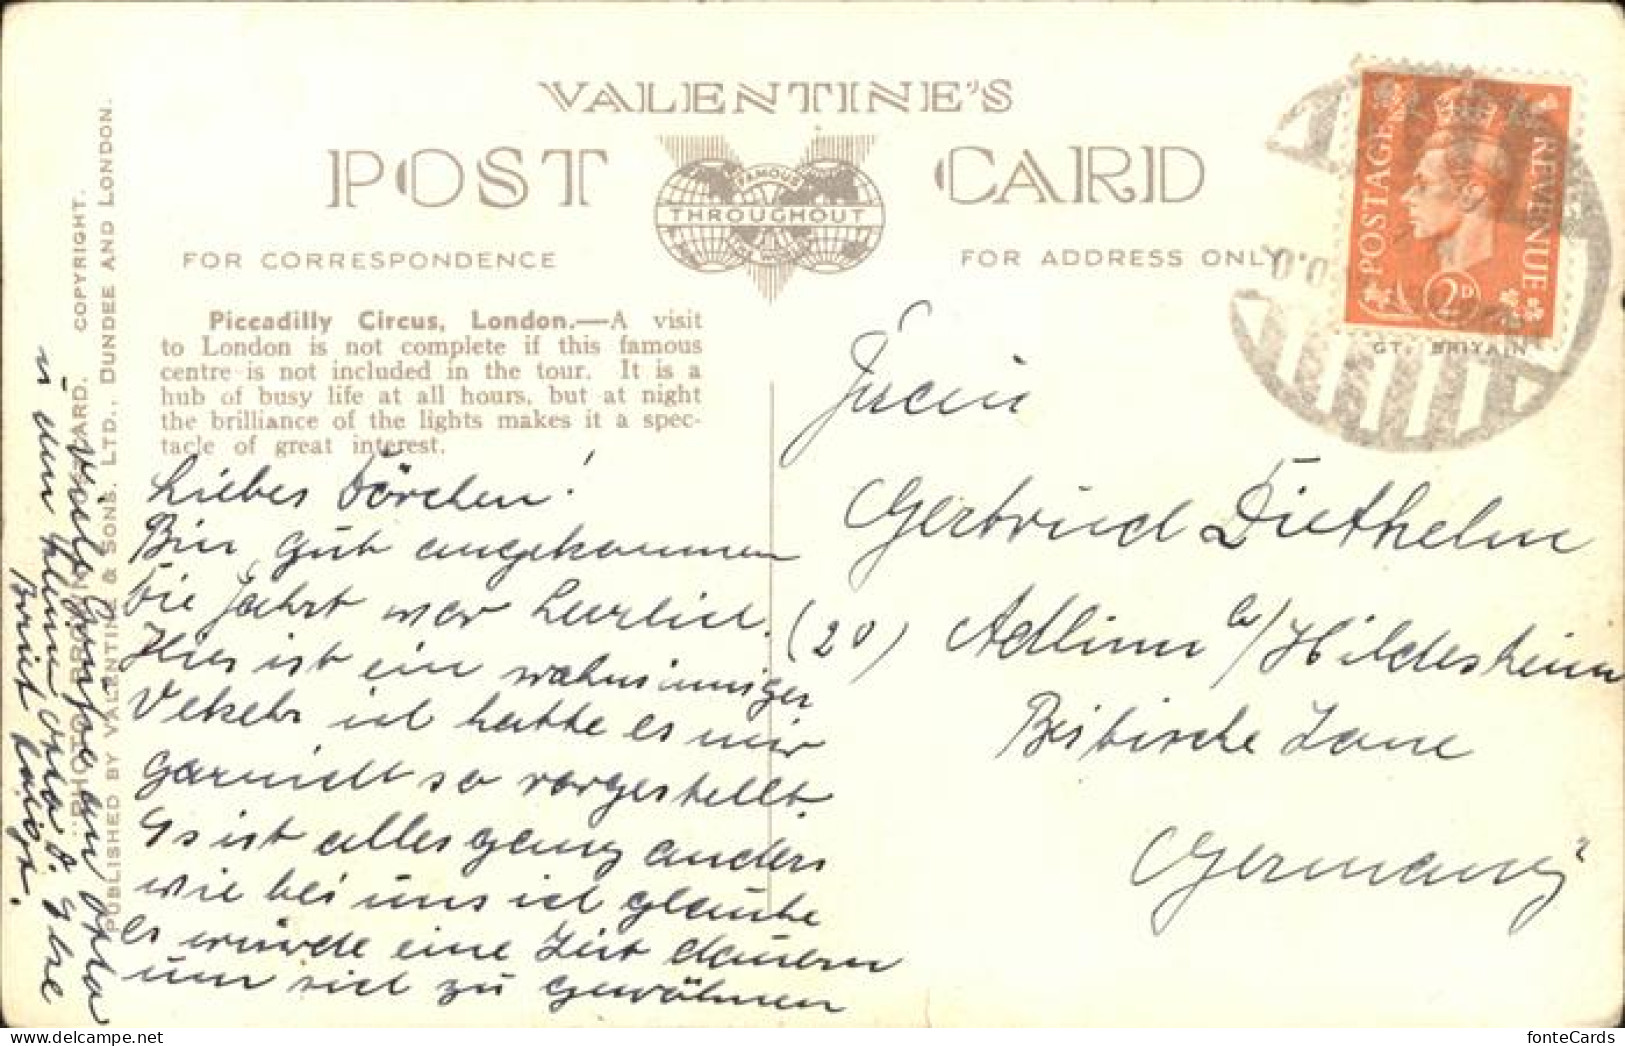 VALENTINE'S
POST CARD
FAMOUS
THROUGHOUT
THE WORLD
FOR CORRESPONDENCE
FOR ADDRESS ONLY
Piccadilly Circus, London.—A visit
to London is not complete if this famous
centre is not included in the tour. It is a
hub of busy life at all hours, but at night
the brilliance of the lights makes it a spec-
tacle of great interest.
COPYRIGHT.
PUBLISHED BY VALENTINE & SONS. LTD., DUNDEE AND LONDON.
POSTAGE
REVENUE
2D
GT. BRITAIN
Liebes Dörchen!
Bin gut angekommen
Die Fahrt war herlich.
Hier ist ein wahnsinniger
Vekehr ich hatte es mir
garnicht so vorgestellt.
Es ist alles ganz anders
wie bei uns ich glaube
es würde eine Zeit dauern
um sich zu gewöhnen
Viele Grüsse an
u dem
Brief folgt.
Gertrud Diethelm
(20) b/Hildesheim
Britische Zone
Germany
fonteCards